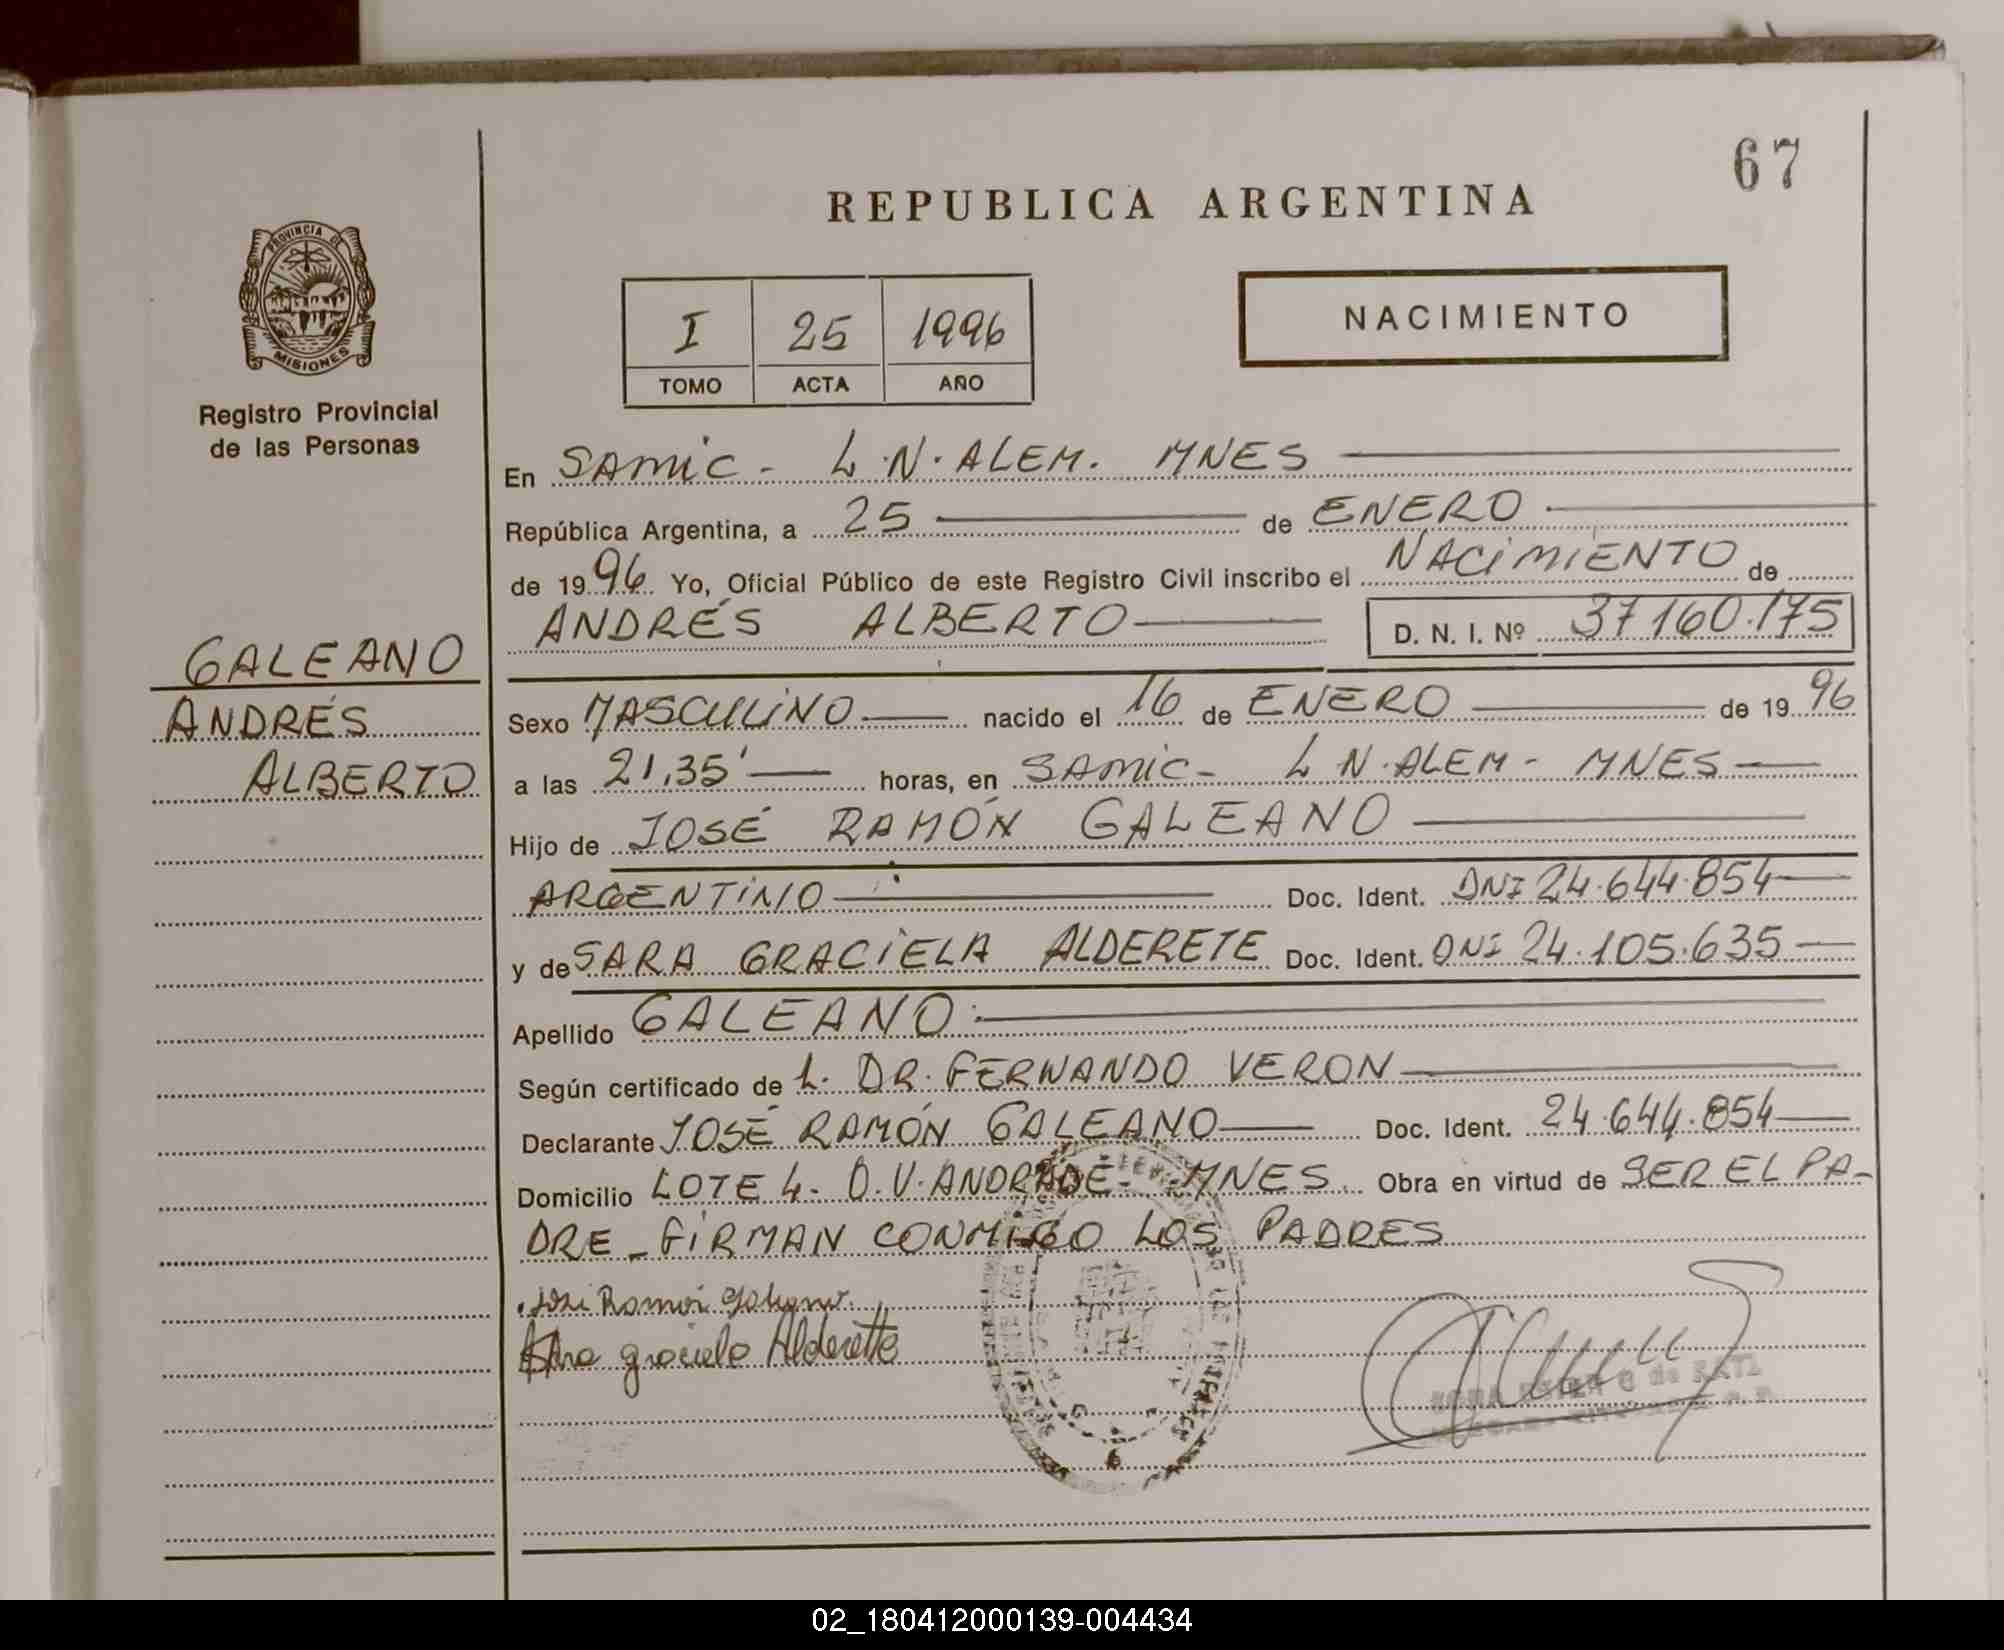 67
REPUBLICA ARGENTINA
PROVINCIA DE
MISIONES
Registro Provincial
de las Personas
I 25 1996
TOMO ACTA AÑO
NACIMIENTO
En SAMIC - L.N. ALEM. MNES
República Argentina, a 25 de ENERO
de 1996 Yo, Oficial Público de este Registro Civil inscribo el NACIMIENTO de
ANDRÉS ALBERTO D. N. I. Nº 37160.175
GALEANO
ANDRÉS
ALBERTO
Sexo MASCULINO nacido el 16 de ENERO de 1996
a las 21,35' horas, en SAMIC - L N. ALEM - MNES
Hijo de JOSÉ RAMÓN GALEANO
ARGENTINO Doc. Ident. DNI 24.644.854
y de SARA GRACIELA ALDERETE Doc. Ident. DNI 24.105.635
Apellido GALEANO
Según certificado de L. DR. FERNANDO VERON
Declarante JOSÉ RAMÓN GALEANO Doc. Ident. 24.644.854
Domicilio LOTE 4. O.V. ANDRADE - MNES. Obra en virtud de SER EL PA-
DRE - FIRMAN CONMIGO LOS PADRES
José Ramon Galeano
Sara graciela Alderette
02_180412000139-004434